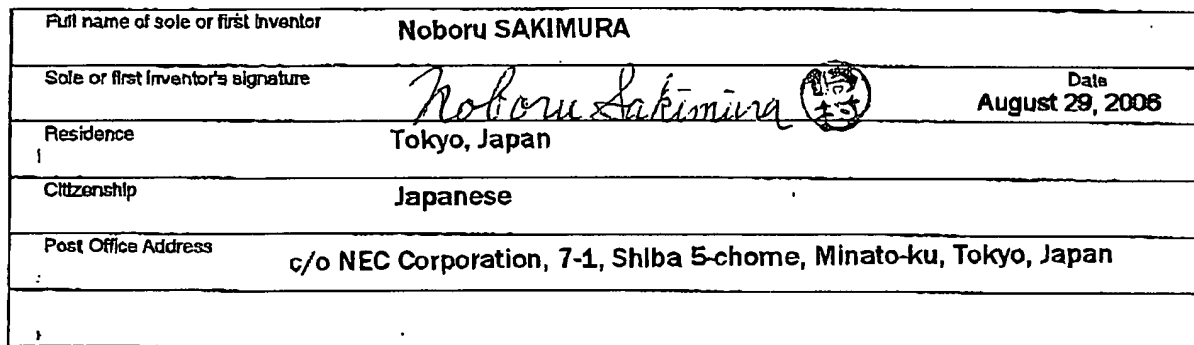 Full name of sole or first inventor Noboru SAKIMURA
Sole or first inventor's signature Noboru Sakimura 崎村 Date
August 29, 2006
Residence Tokyo, Japan
Citizenship Japanese
Post Office Address c/o NEC Corporation, 7-1, Shiba 5-chome, Minato-ku, Tokyo, Japan